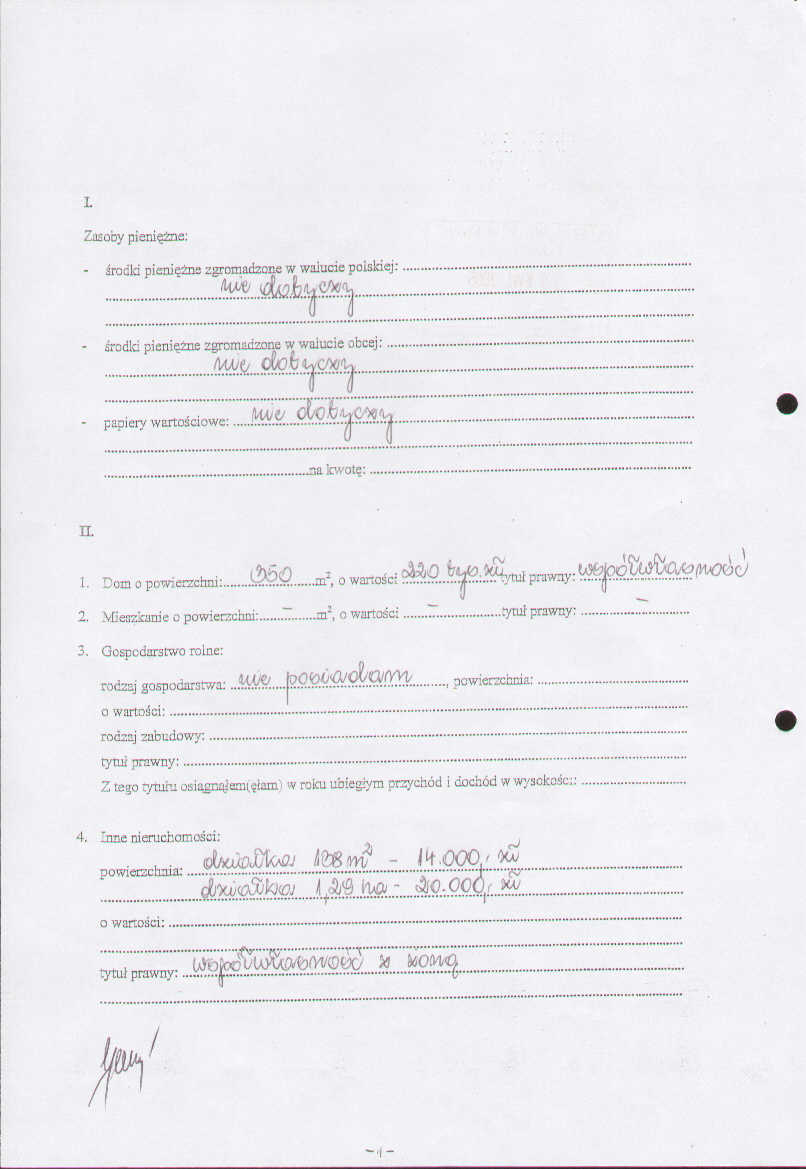 I.
Zasoby pieniężne:
- środki pieniężne zgromadzone w walucie polskiej: ....................
nie dotyczy
- środki pieniężne zgromadzone w walucie obcej: ....................
nie dotyczy
- papiery wartościowe: nie dotyczy
....................na kwotę: ....................
II.
1. Dom o powierzchni: 350 m², o wartości 220 tys. zł tytuł prawny: współwłasność
2. Mieszkanie o powierzchni: – m², o wartości – tytuł prawny: –
3. Gospodarstwo rolne:
rodzaj gospodarstwa: nie posiadam, powierzchnia: ....................
o wartości: ....................
rodzaj zabudowy: ....................
tytuł prawny: ....................
Z tego tytułu osiągnąłem(ęłam) w roku ubiegłym przychód i dochód w wysokości: ....................
4. Inne nieruchomości:
powierzchnia: działka 138 m² – 14.000,- zł
działka 1,29 ha – 20.000,- zł
o wartości: ....................
tytuł prawny: współwłasność z żoną